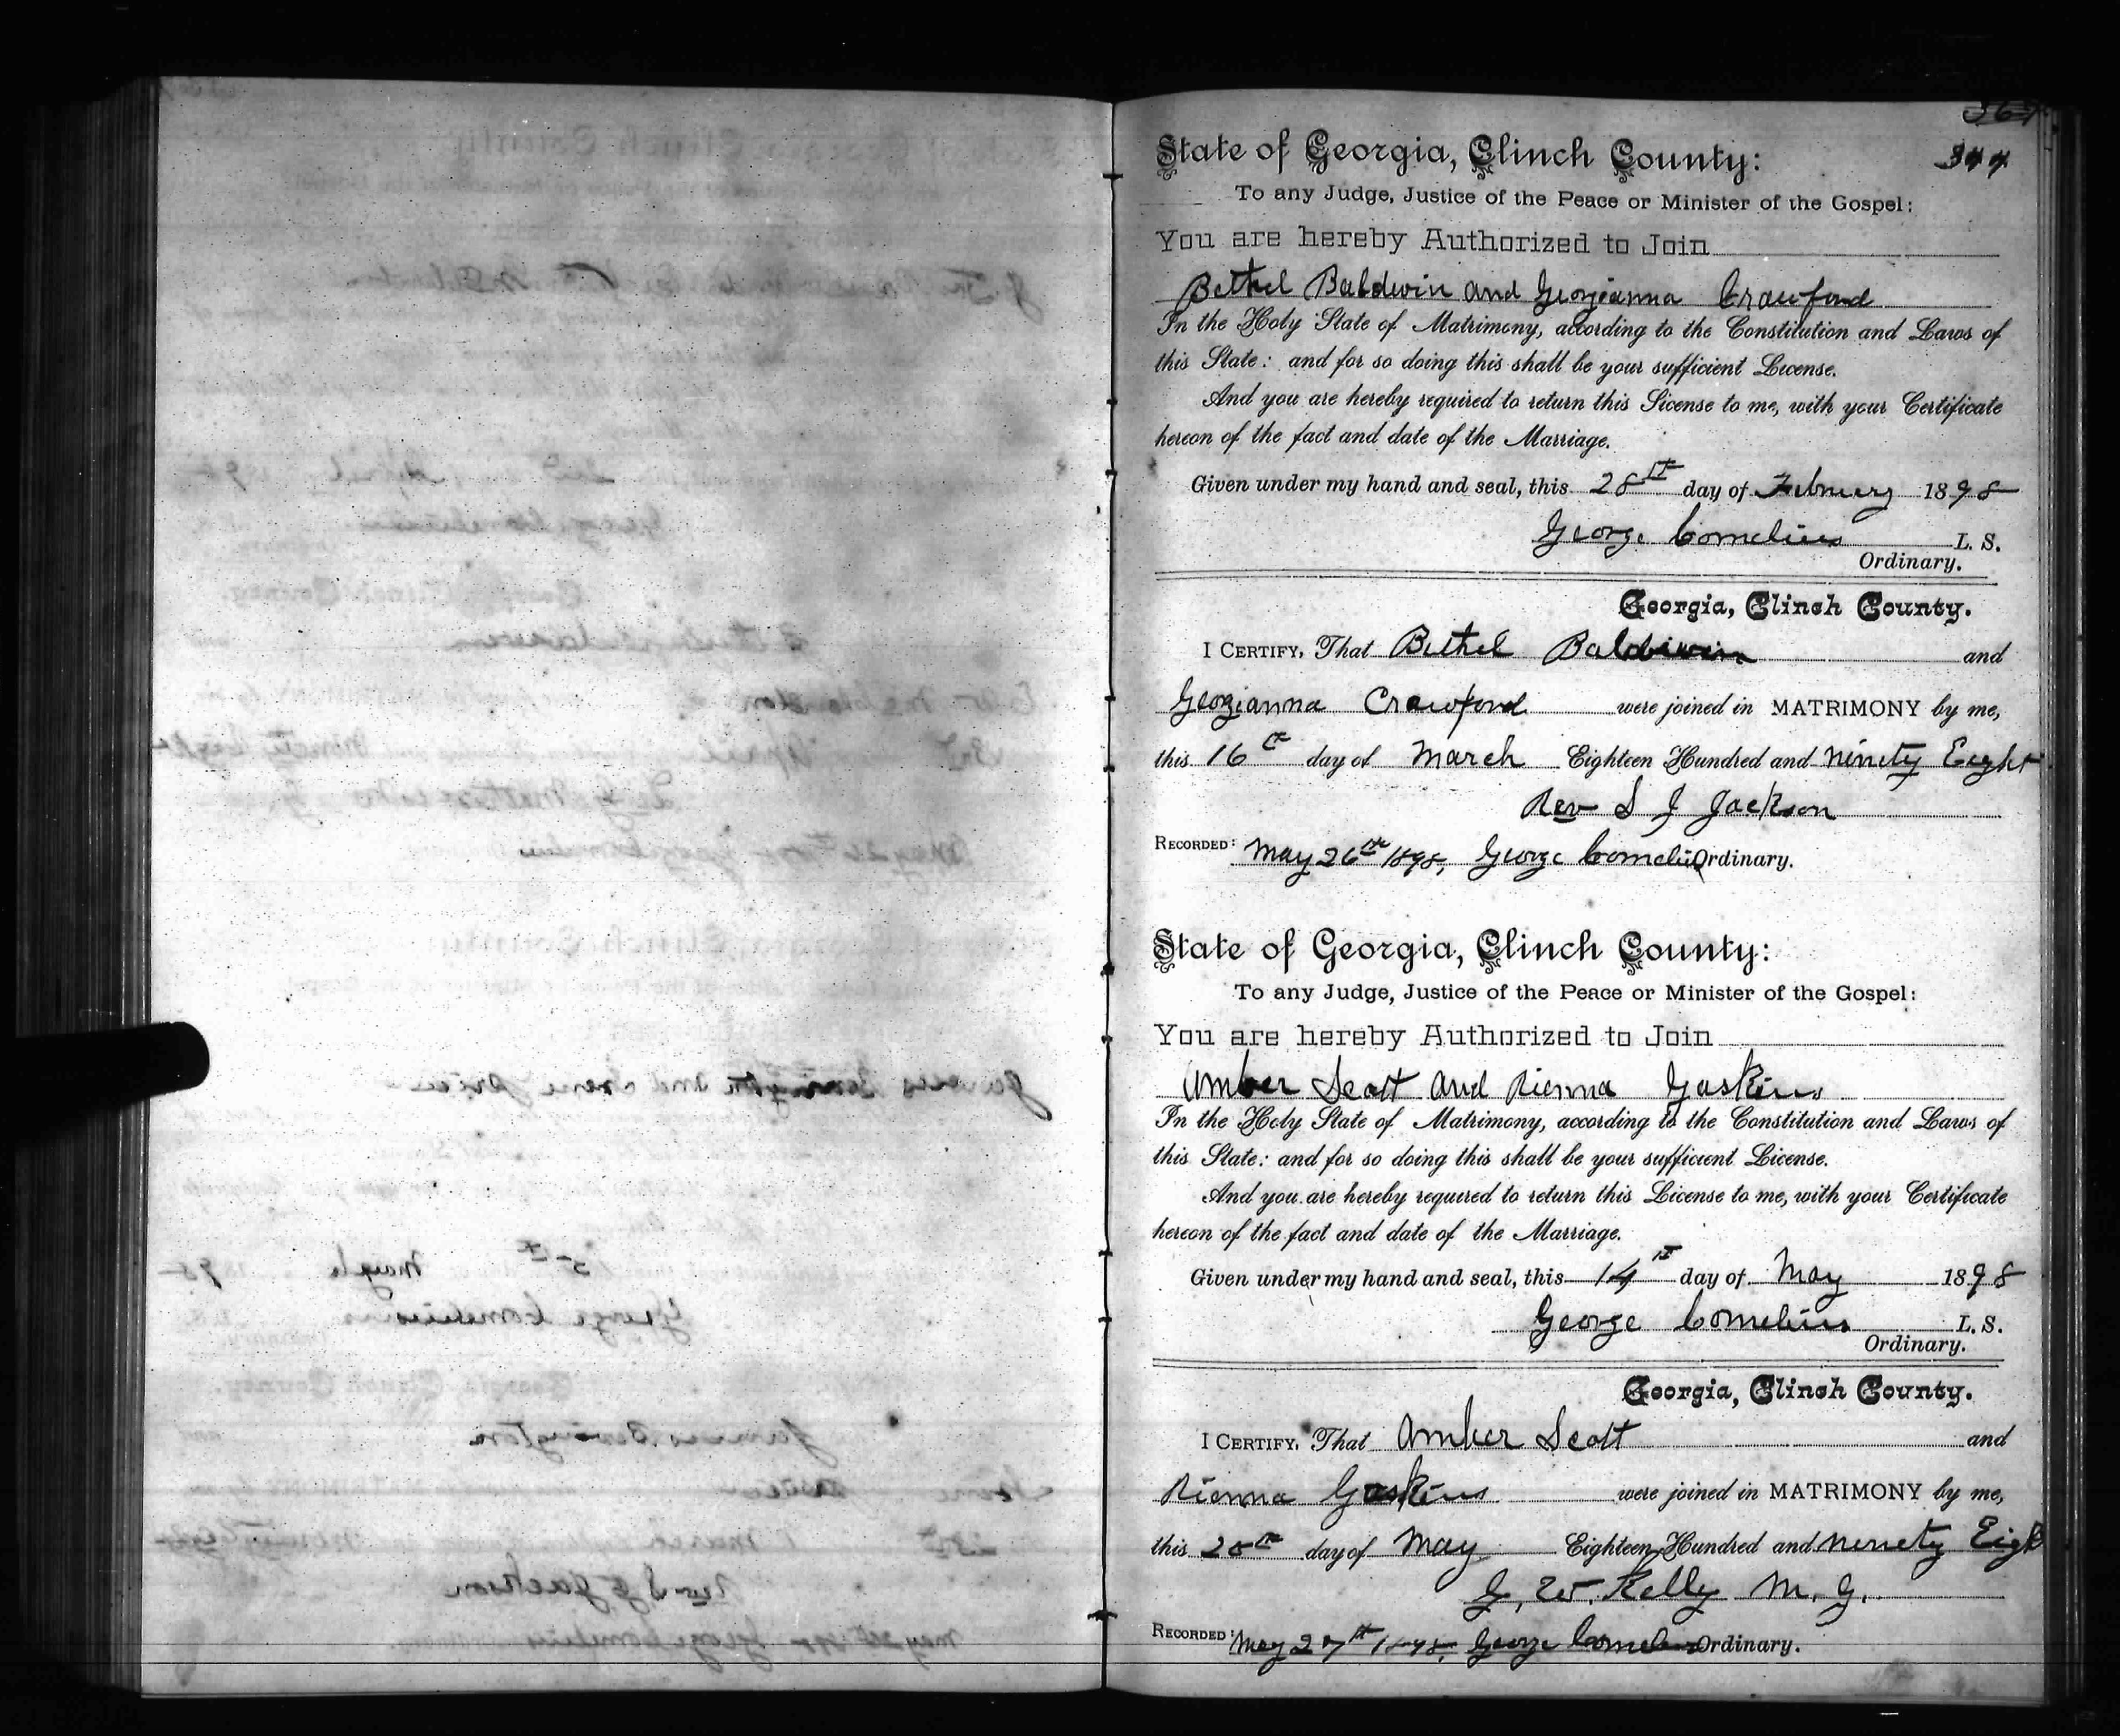 344
State of Georgia, Clinch County:
To any Judge, Justice of the Peace or Minister of the Gospel:
You are hereby Authorized to Join
Bethel Baldwin and Georgianna Crawford
In the Holy State of Matrimony, according to the Constitution and Laws of
this State: and for so doing this shall be your sufficient License.
And you are hereby required to return this License to me, with your Certificate
hereon of the fact and date of the Marriage.
Given under my hand and seal, this 28th day of February 1898
George Cornelius L. S.
Ordinary.
Georgia, Clinch County.
I CERTIFY, That Bethel Baldwin and
Georgianna Crawford were joined in MATRIMONY by me,
this 16th day of March Eighteen Hundred and ninety Eight
Rev S J Jackson
RECORDED: May 26th 1898, George Cornelius Ordinary.
State of Georgia, Clinch County:
To any Judge, Justice of the Peace or Minister of the Gospel:
You are hereby Authorized to Join
Amber Scott and Rienna Gaskins
In the Holy State of Matrimony, according to the Constitution and Laws of
this State: and for so doing this shall be your sufficient License.
And you are hereby required to return this License to me, with your Certificate
hereon of the fact and date of the Marriage.
Given under my hand and seal, this 14th day of May 1898
George Cornelius L. S.
Ordinary.
Georgia, Clinch County.
I CERTIFY, That Amber Scott and
Rienna Gaskins were joined in MATRIMONY by me,
this 20th day of May Eighteen Hundred and ninety Eigh
G. W. Kelly M. G.
RECORDED: May 27th 1898, George Cornelius Ordinary.